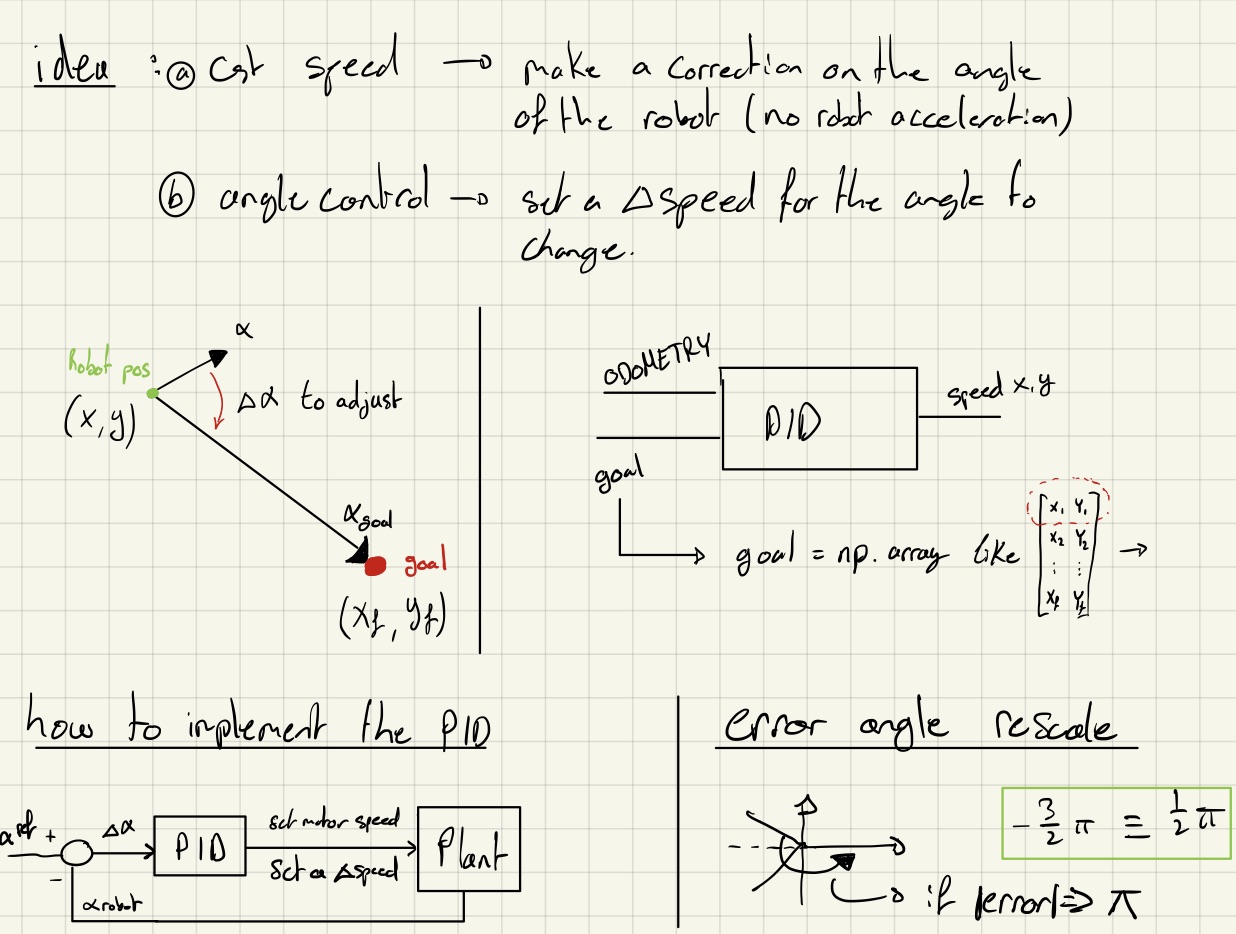 idea : ⓐ Cst speed → make a correction on the angle
of the robot (no robot acceleration)
ⓑ angle control → set a Δspeed for the angle to
change.
α
Robot pos
(x,y)
Δα to adjust
α goal
goal
(xf, yf)
ODOMETRY
PID
speed x,y
goal
goal = np.array like [x₁ y₁
x₂ y₂
⋮ ⋮
xf yf] →
how to implement the PID
α ref + Δα PID set motor speed Plant
Set a Δspeed
−
α robot
error angle rescale
-3/2 π ≡ 1/2 π
if |error| => π